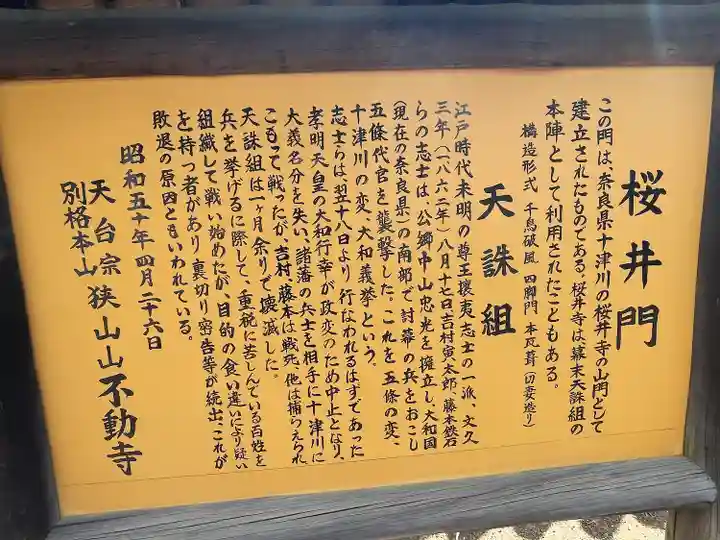 桜井門
この門は、奈良県十津川の桜井寺の山門として
建立されたものである。桜井寺は幕末天誅組の
本陣として利用されたこともある。
構造形式 千鳥破風 四脚門 本瓦葺(切妻造り)
天誅組
江戸時代末明の尊王攘夷志士の一派、文久
三年(一八六二年)八月十七日吉村寅太郎、藤本鉄石
らの志士は、公郷中山忠光を擁立し、大和国
(現在の奈良県)の南部で討幕の兵をおこし
五條代官を襲撃した。これを五條の変、
十津川の変、大和義挙という。
志士らは、翌十八日より行なわれるはずであった
孝明天皇の大和行幸が政変のため中止となり、
大義名分を失い、諸藩の兵士を相手に十津川に
こもって戦ったが、吉村藤本は戦死、他は捕らえられ
天誅組は一ヶ月余りで壊滅した。
兵を挙げるに際して、重税に苦しんでいる百姓を
組織して戦い始めたが、目的の食い違いにより疑い
を持つ者があり裏切り密告等が続出、これが
敗退の原因ともいわれている。
昭和五十年四月二十六日
天台宗
別格本山 狭山山不動寺